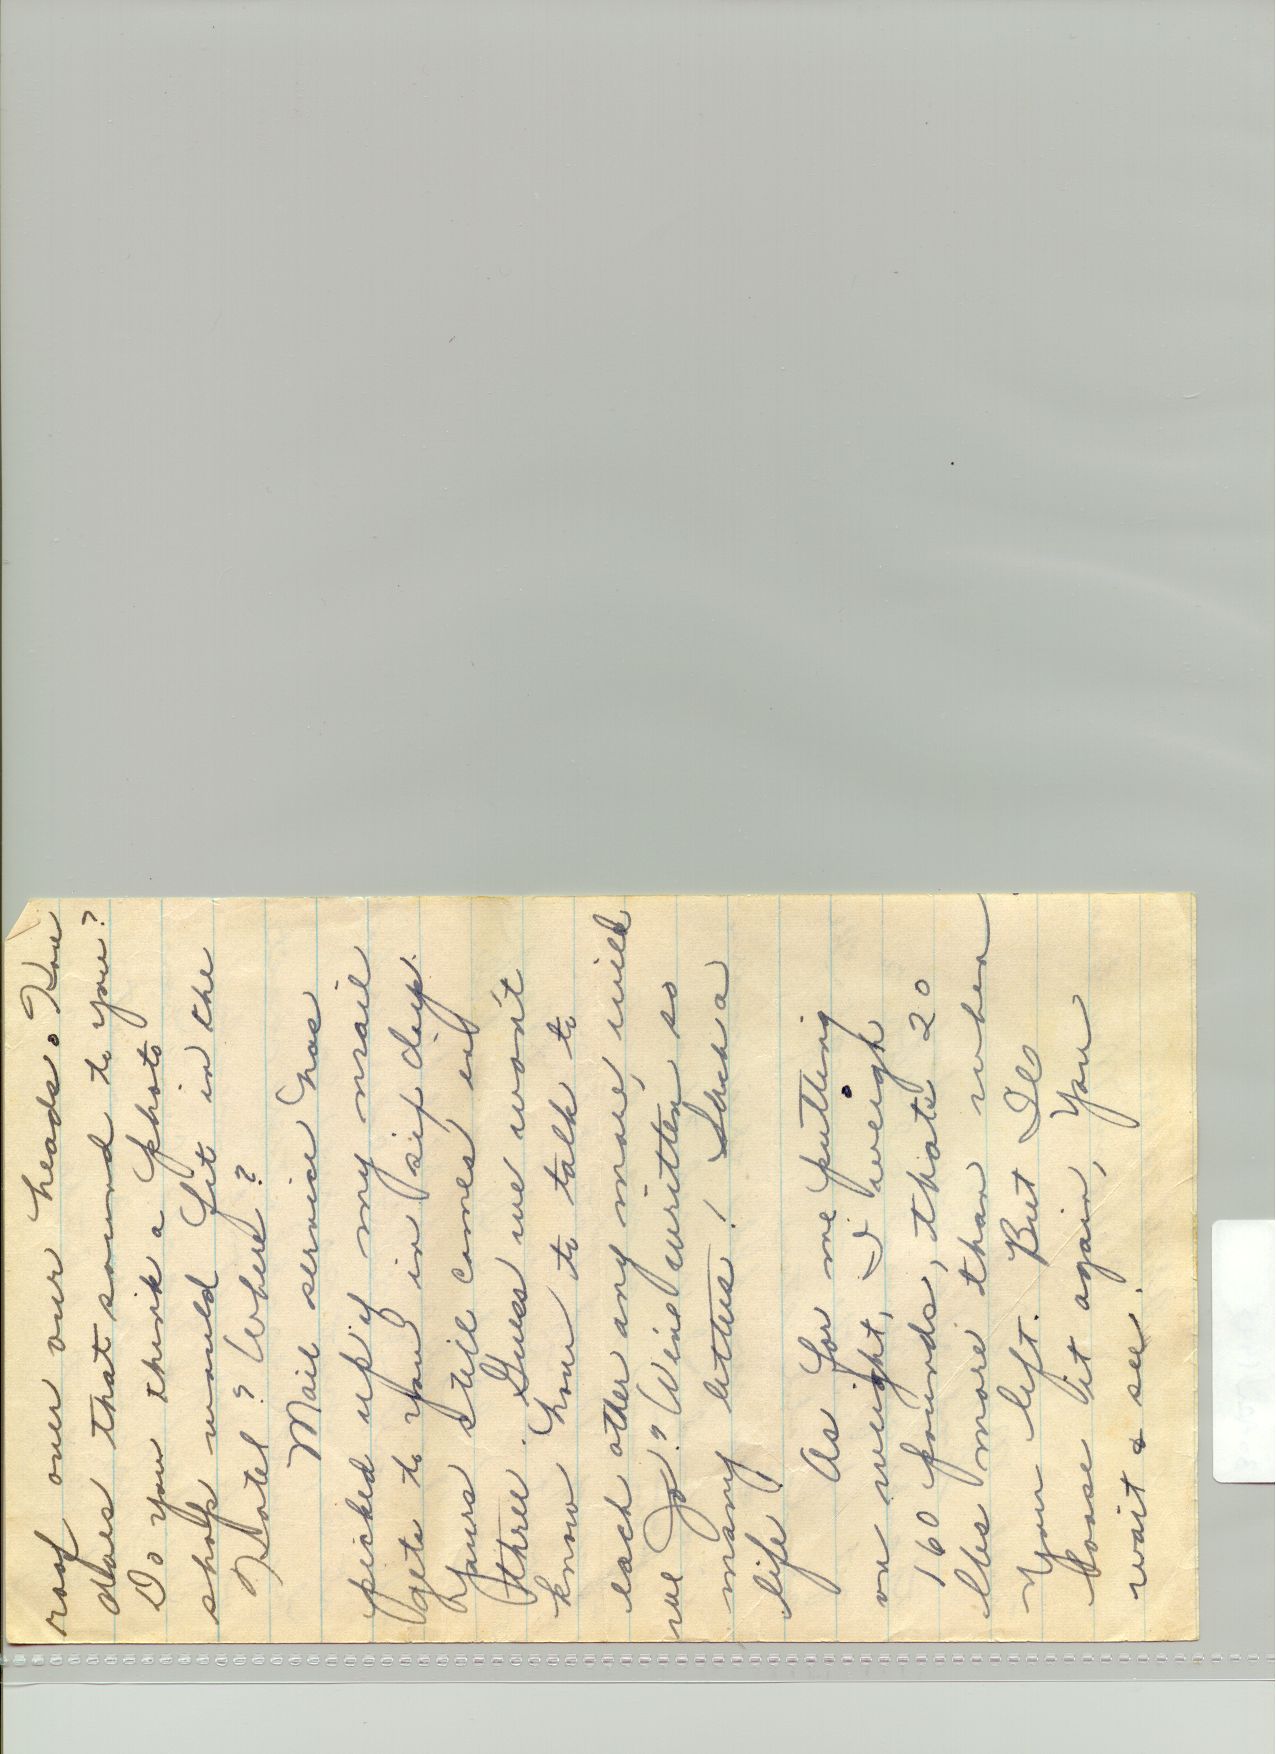 roof over our heads. How
does that sound to you?
Do you think a photo
shop would fit in the
Hotel? Where?
Mail service has
picked up if my mail
gets to you in six days.
Yours still comes in
three. Guess we won't
know how to talk to
each other any more, will
we Jo? We've written so
many letters! Such a
life
As for me putting
on weight, I weigh
160 pounds, that's 20
lbs more than when
you left. But I'll
loose it again, you
wait & see.